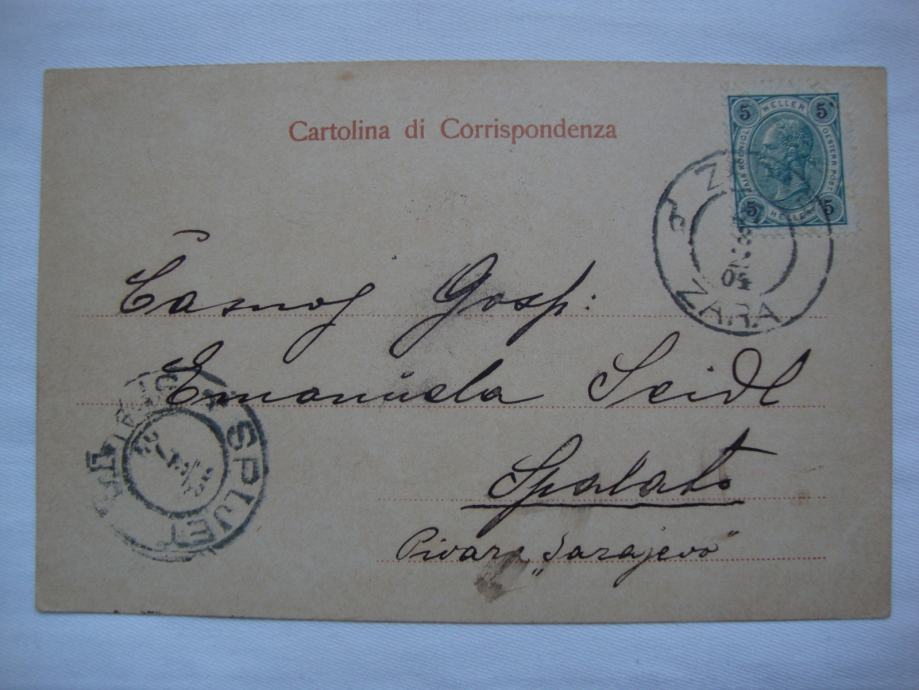 Cartolina di Corrispondenza
5 HELLER 5
KAIS. KÖNIGL. OESTERR. POST.
5 HELLER 5
ZARA
04
Časnoj Gosp:
Emanuela Seidl
Spalato
Pivara „Sarajevo"
SPLJET